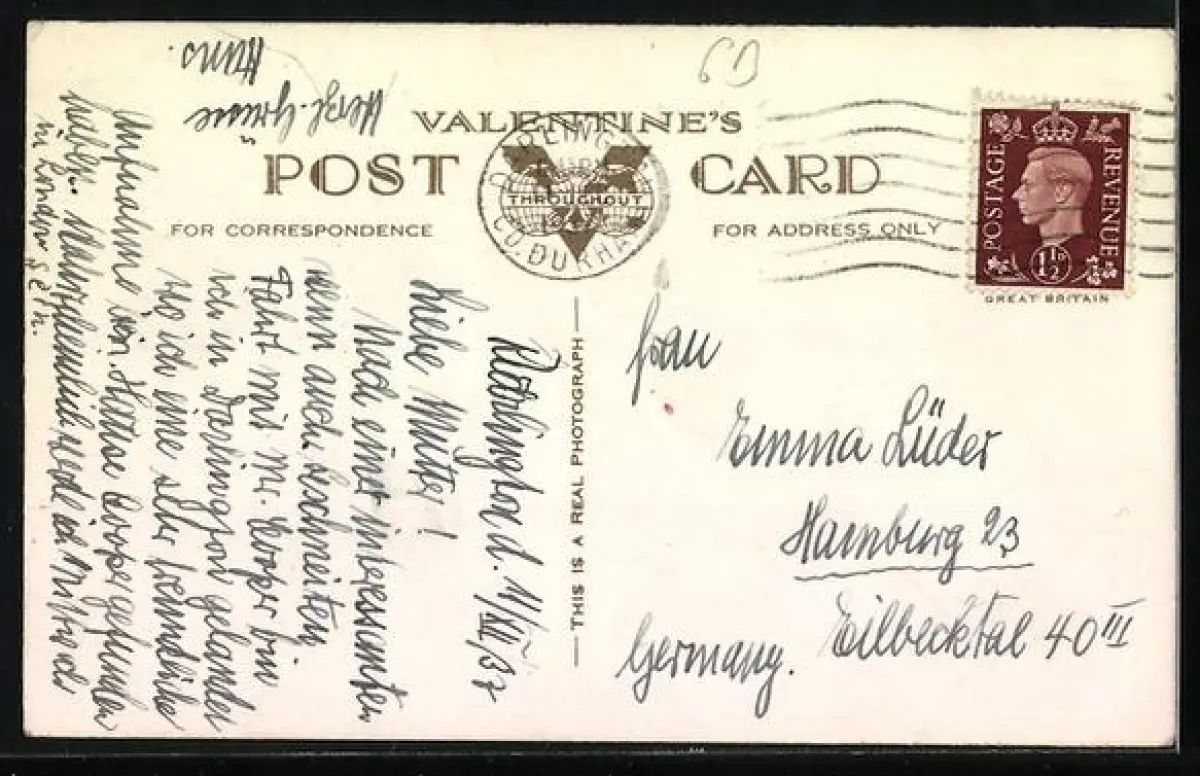 6D
VALENTINE'S
POST CARD
FOR CORRESPONDENCE
FOR ADDRESS ONLY
THROUGHOUT
CO. DURHA
POSTAGE
REVENUE
1½D
GREAT BRITAIN
THIS IS A REAL PHOTOGRAPH
Darlington d. 11/XII/37
Liebe Mutter!
Nach einer interessanten
wenn auch beschneiten
Fahrt mit Mr. Cooper bin
ich in Darlington gelandet
wo ich eine sehr freundliche
Aufnahme im Hause Cooper gefunden
habe. Wahrscheinlich werde ich Mittwoch
in London sein.
Herzl. Grüsse
Hans.
Frau
Emma Lüder
Hamburg 23
Eilbecktal 40 III
Germany.